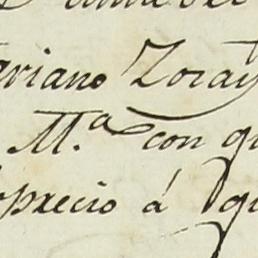 ariano Zoray
M.ª con qu
precio á qu